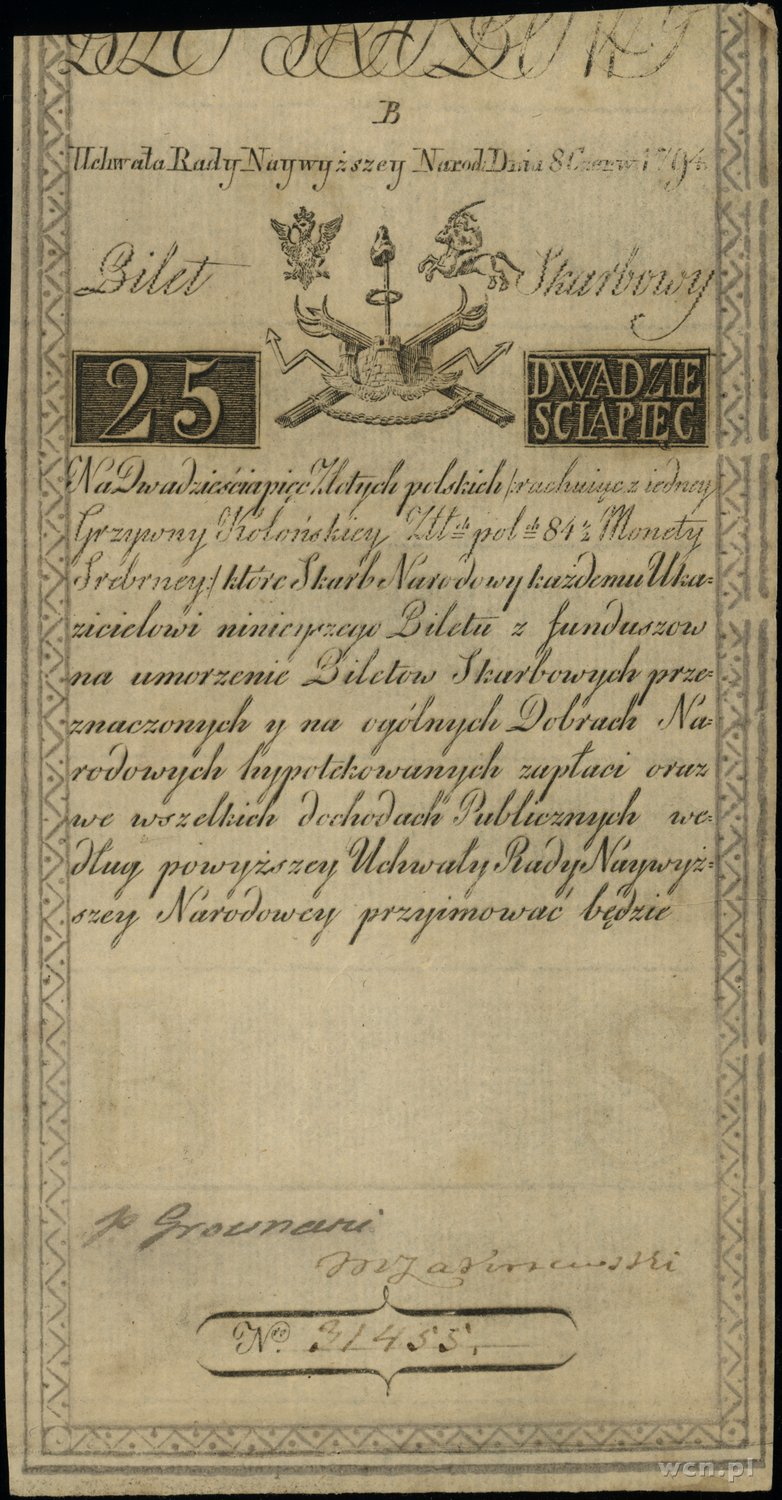 BILET SKARBOWY
B
Uchwała Rady Naywyższey Narod. Dnia 8 Czerw. 1794
Bilet Skarbowy
25 DWADZIE
SCIAPIĘC
Na Dwadzieściapięć Złotych polskich /:rachuiąc z iedney
Grzywny Kolońskiey Złł:ch pol:ch 84 1/2 Monety
Srebrney:/ które Skarb Narodowy każdemu Uka=
zicielowi ninieyszego Biletu z funduszow
na umorzenie Biletow Skarbowych prze=
znaczonych y na ogólnych Dobrach Na=
rodowych hypotekowanych zapłaci oraz
we wszelkich dochodach Publicznych we=
dług powyższey Uchwały Rady Naywyż=
szey Narodowey przyimować będzie
N.ro 31455.
wcn.pl